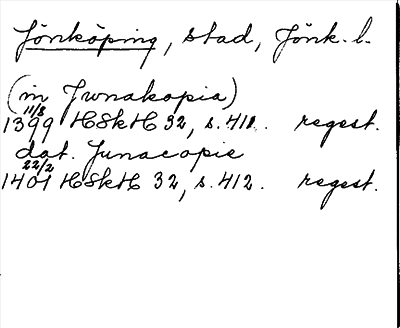 Jönköping, stad, Jönk. l.
(in Junakopia)
11/8
1399 HSkH 32, s. 411. regest.
dat. Junacopie
22/2
1401 HSkH 32, s. 412. regest.